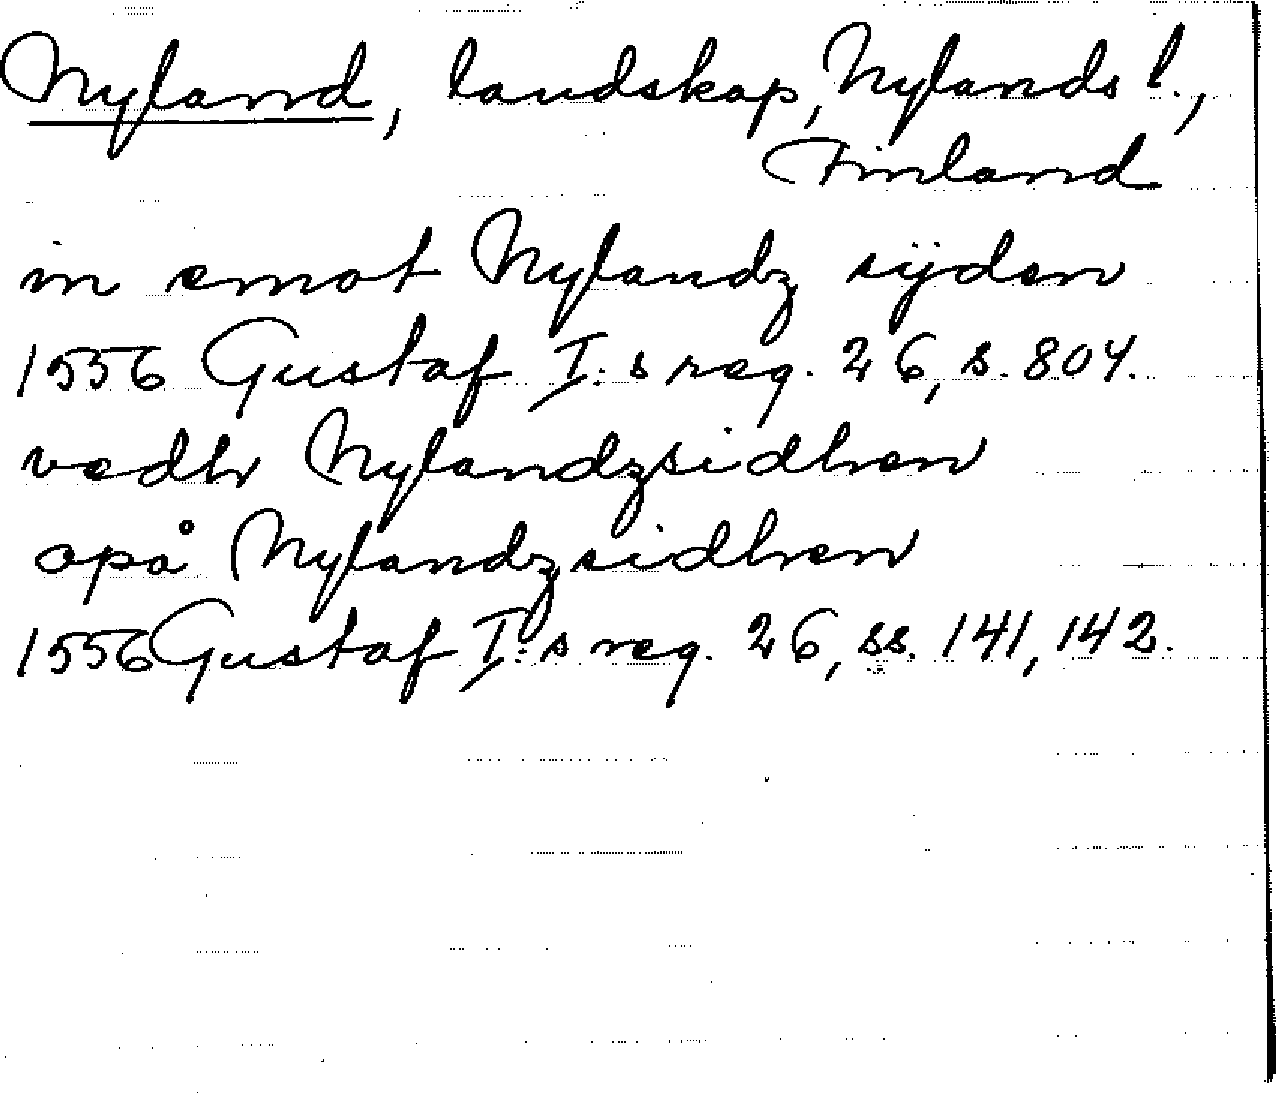 Nyland, landskap, Nylands l.,
Finland
in emot Nylandz sijden
1556 Gustaf I:s reg. 26, s. 804.
vedh Nylandzsidhen
opå Nylandzsidhen
1556 Gustaf I:s reg. 26, ss. 141, 142.